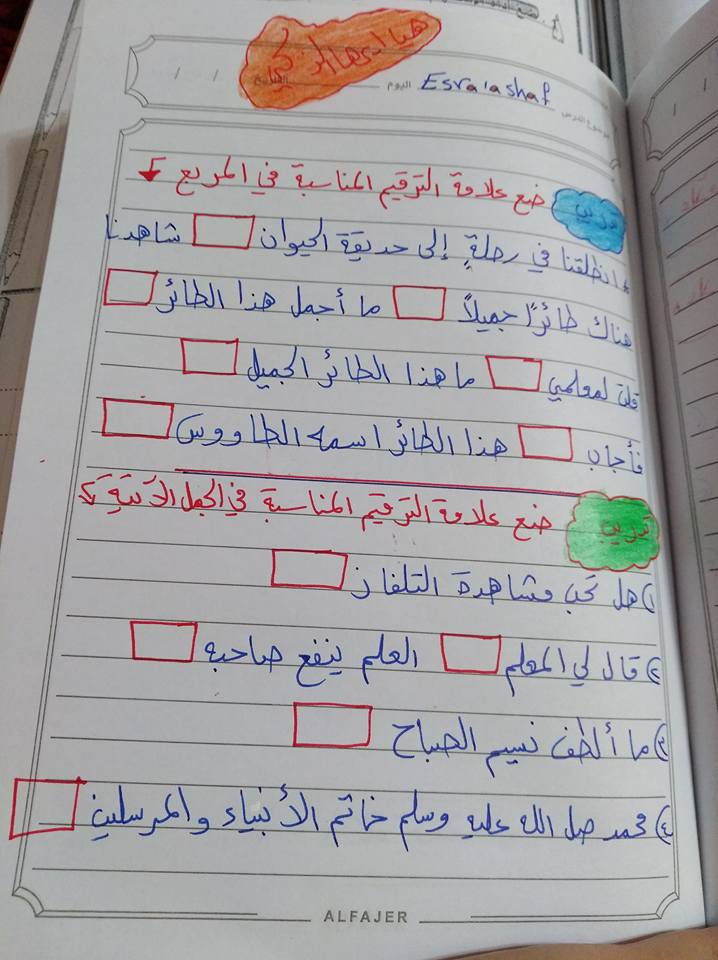 هيا
اليوم Esra'ashaf
ضع علامة الترقيم المناسبة في المربع
تدريب
انطلقنا في رحلةٍ إلى حديقة الحيوان شاهدنا
هناك طائرًا جميلاً ما أجمل هذا الطائر
قلت لمعلمي ما هذا الطائر الجميل
فأجاب هذا الطائر اسمه الطاووس
تدريب ضع علامة الترقيم المناسبة في الجمل الآتية
١) هل تحب مشاهدة التلفاز
٢) قال لي المعلم العلم ينفع صاحبه
٣) ما ألطف نسيم الصباح
٤) محمد صل الله عليه وسلم خاتم الأنبياء والمرسلين
ALFAJER